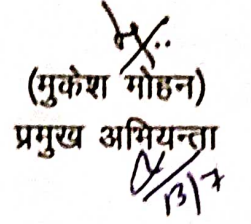 (मुकेश मोहन)
प्रमुख अभियन्ता
13/7